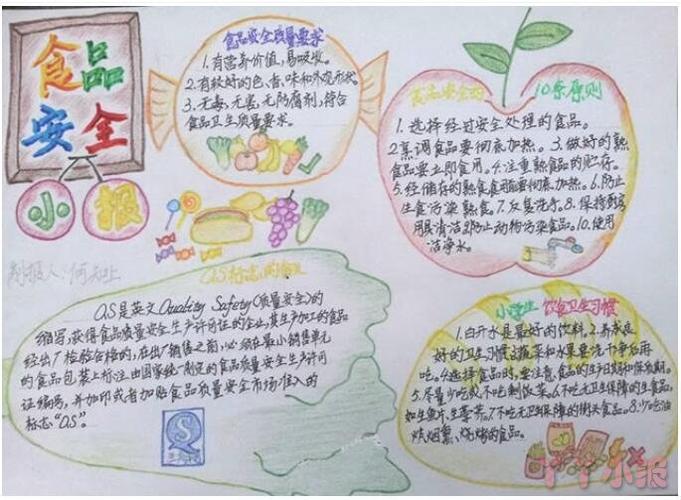 食品
安全
小报
食品安全质量要求
1.有营养价值,易吸收。
2.有较好的色、香、味和外观形状。
3.无毒、无害、无防腐剂,符合
食品卫生质量要求。
食品安全的 10条原则
1.选择经过安全处理的食品。
2.烹调食品要彻底加热。3.做好的熟
食品要立即食用。4.注重熟食品的贮存。
5.经储存的熟食食用前要彻底加热。6.防止
生食污染熟食。7.反复洗手。8.保持厨房
用具清洁。9.防止动物污染食品。10.使用
洁净水。
制报人:何
QS标志的
QS是英文Quality Safety(质量安全)的
缩写,获得食品质量安全生产许可证的企业,其生产加工的食品
经出厂检验合格的,在出厂销售之前,必须在最小销售单元
的食品包装上标注由国家统一制定的食品质量安全生产许可
证编号,并加印或者加贴食品质量安全市场准入的
标志“QS”。
小学生 饮食卫生习惯
1.白开水是最好的饮料。2.养成良
好的卫生习惯。3.蔬菜和水果要洗干净后再
吃。4.选择食品时,要注意食品的生产日期和保质期。
5.尽量少吃或不吃剩饭菜。6.不吃无卫生保障的生食食品,
如生鱼片、生荸荠。7.不吃无卫生保障的街头食品。8.少吃油
炸、烟熏、烧烤的食品。
千千小报